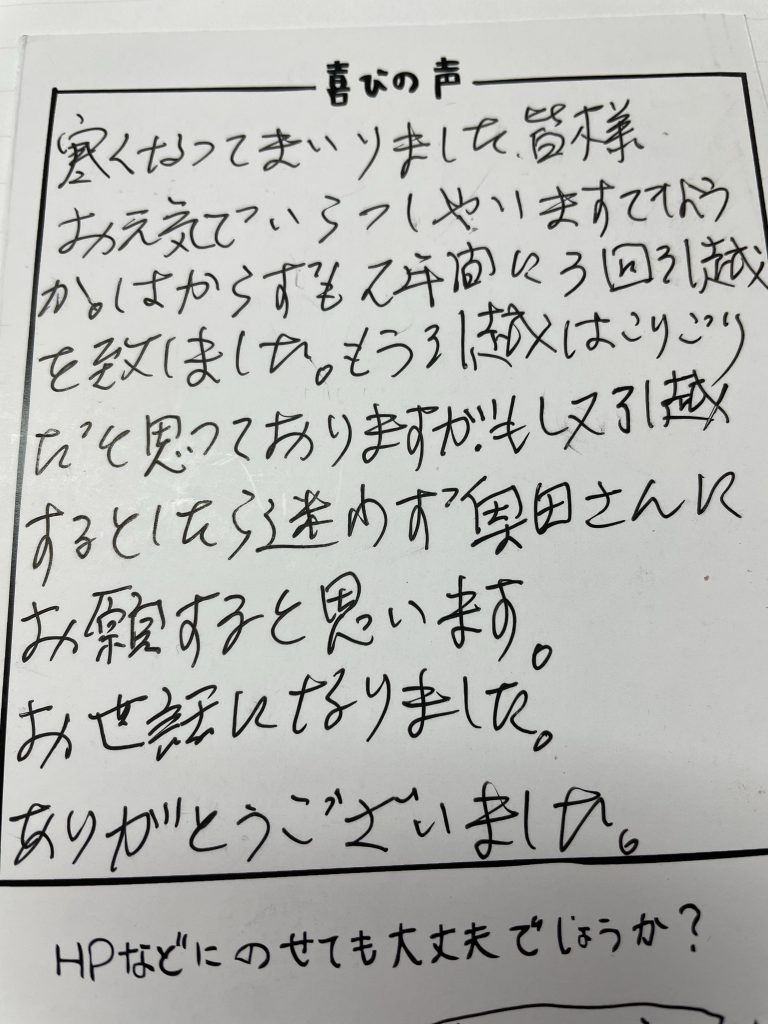 喜びの声
寒くなってまいりました、皆様
お元気でいらっしゃいますでしょう
か。はからずも 年間に3回引越
を致しました。もう引越はこりごり
だと思っておりますが、もし又引越
するとしたら迷わず奥田さんに
お願すると思います。
お世話になりました。
ありがとうございました。
HPなどにのせても大丈夫でじょうか?